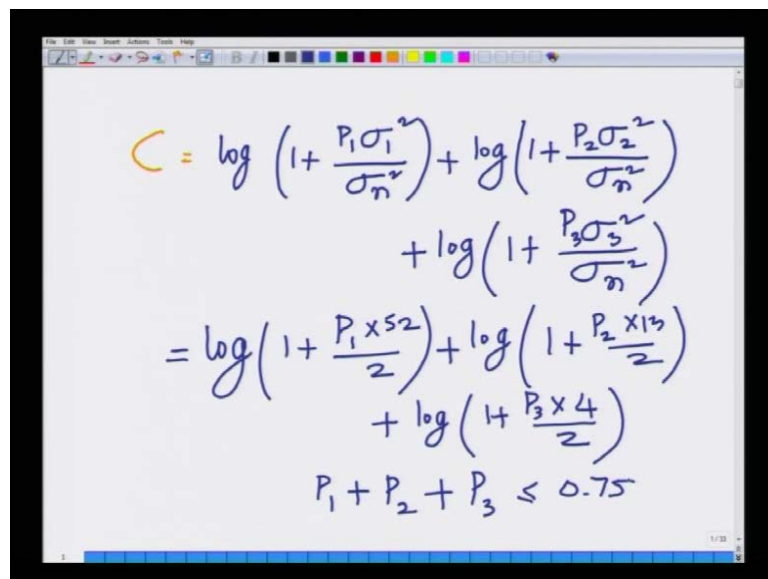 File Edit View Insert Actions Tools Help
C = log (1 + P₁σ₁²/σₙ²) + log (1 + P₂σ₂²/σₙ²)
+ log (1 + P₃σ₃²/σₙ²)
= log (1 + P₁ × 52/2) + log (1 + P₂ × 13/2)
+ log (1 + P₃ × 4/2)
P₁ + P₂ + P₃ ≤ 0.75
1/33
1